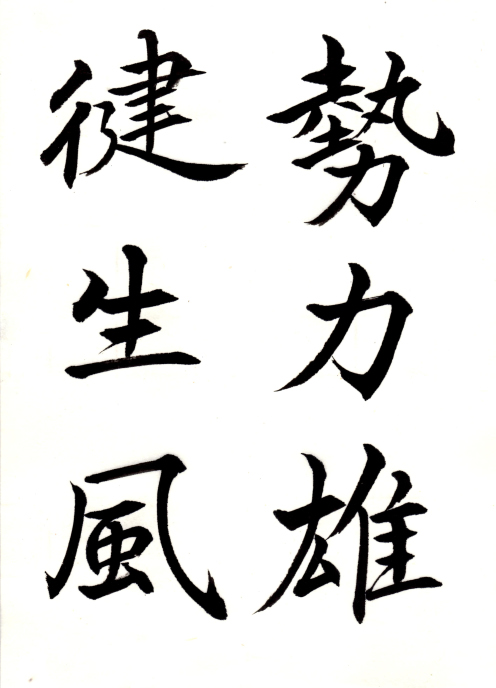 勢力雄
徤生風